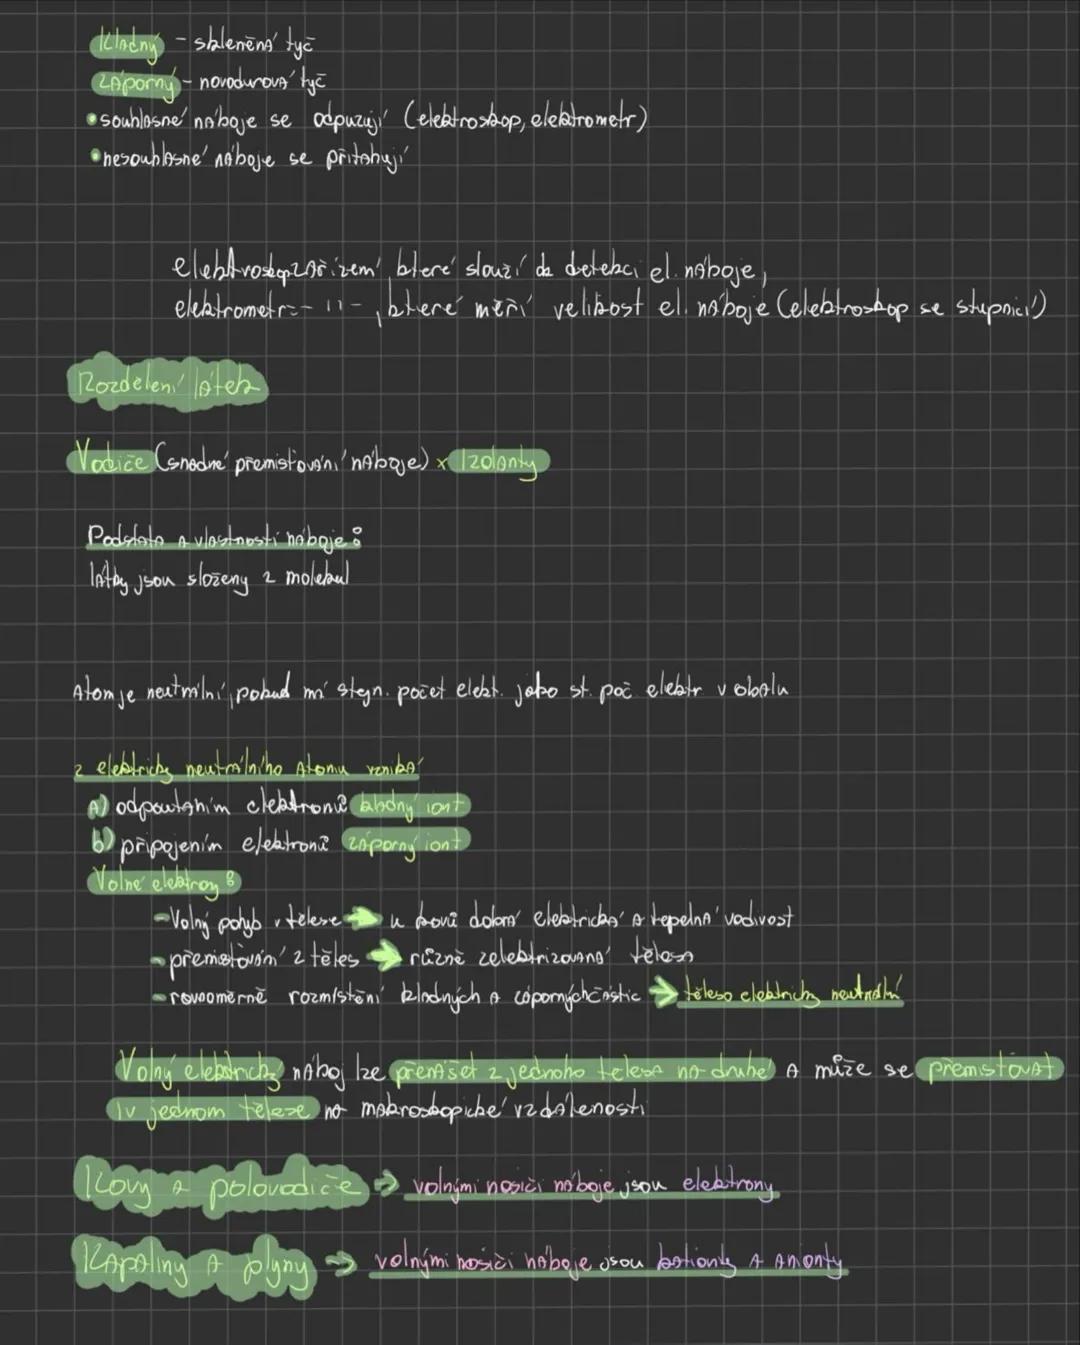 Kladný - skleněná tyč
záporný - novodurová tyč
• souhlasné náboje se odpuzují (elektroskop, elektrometr)
• nesouhlasné náboje se přitahují
elektroskop zařízení, které slouží da detekci el. náboje,
elektrometr -- 11 - , které měří velikost el. náboje (elektroskop se stupnicí)
Rozdělení látek
Vodiče (snadné přemisťování náboje) x Izolanty
Podstata a vlastnosti náboje :
látky jsou složeny z molekul
Atom je neutrální, pokud má stejn. počet elekt. jako st. poč elektr v obalu
z elektricky neutrálního atomu vzniká
a) odpoutáním elektronů kladný iont
b) připojením elektronů záporný iont
Volné elektrony :
- Volný pohyb v tělese → u kovů dobrá elektrická a tepelná vodivost
- přemisťování z těles → různě zelektrizovaná tělesa
- rovnoměrně rozmístění kladných a záporných částic → těleso elektricky neutrální
Volný elektrický náboj lze přenášet z jednoho tělesa na druhé a může se přemisťovat
i v jednom tělese na makroskopické vzdálenosti
Kovy a polovodiče → volnými nosiči náboje jsou elektrony
Kapaliny a plyny → volnými nosiči náboje jsou kationty a anionty